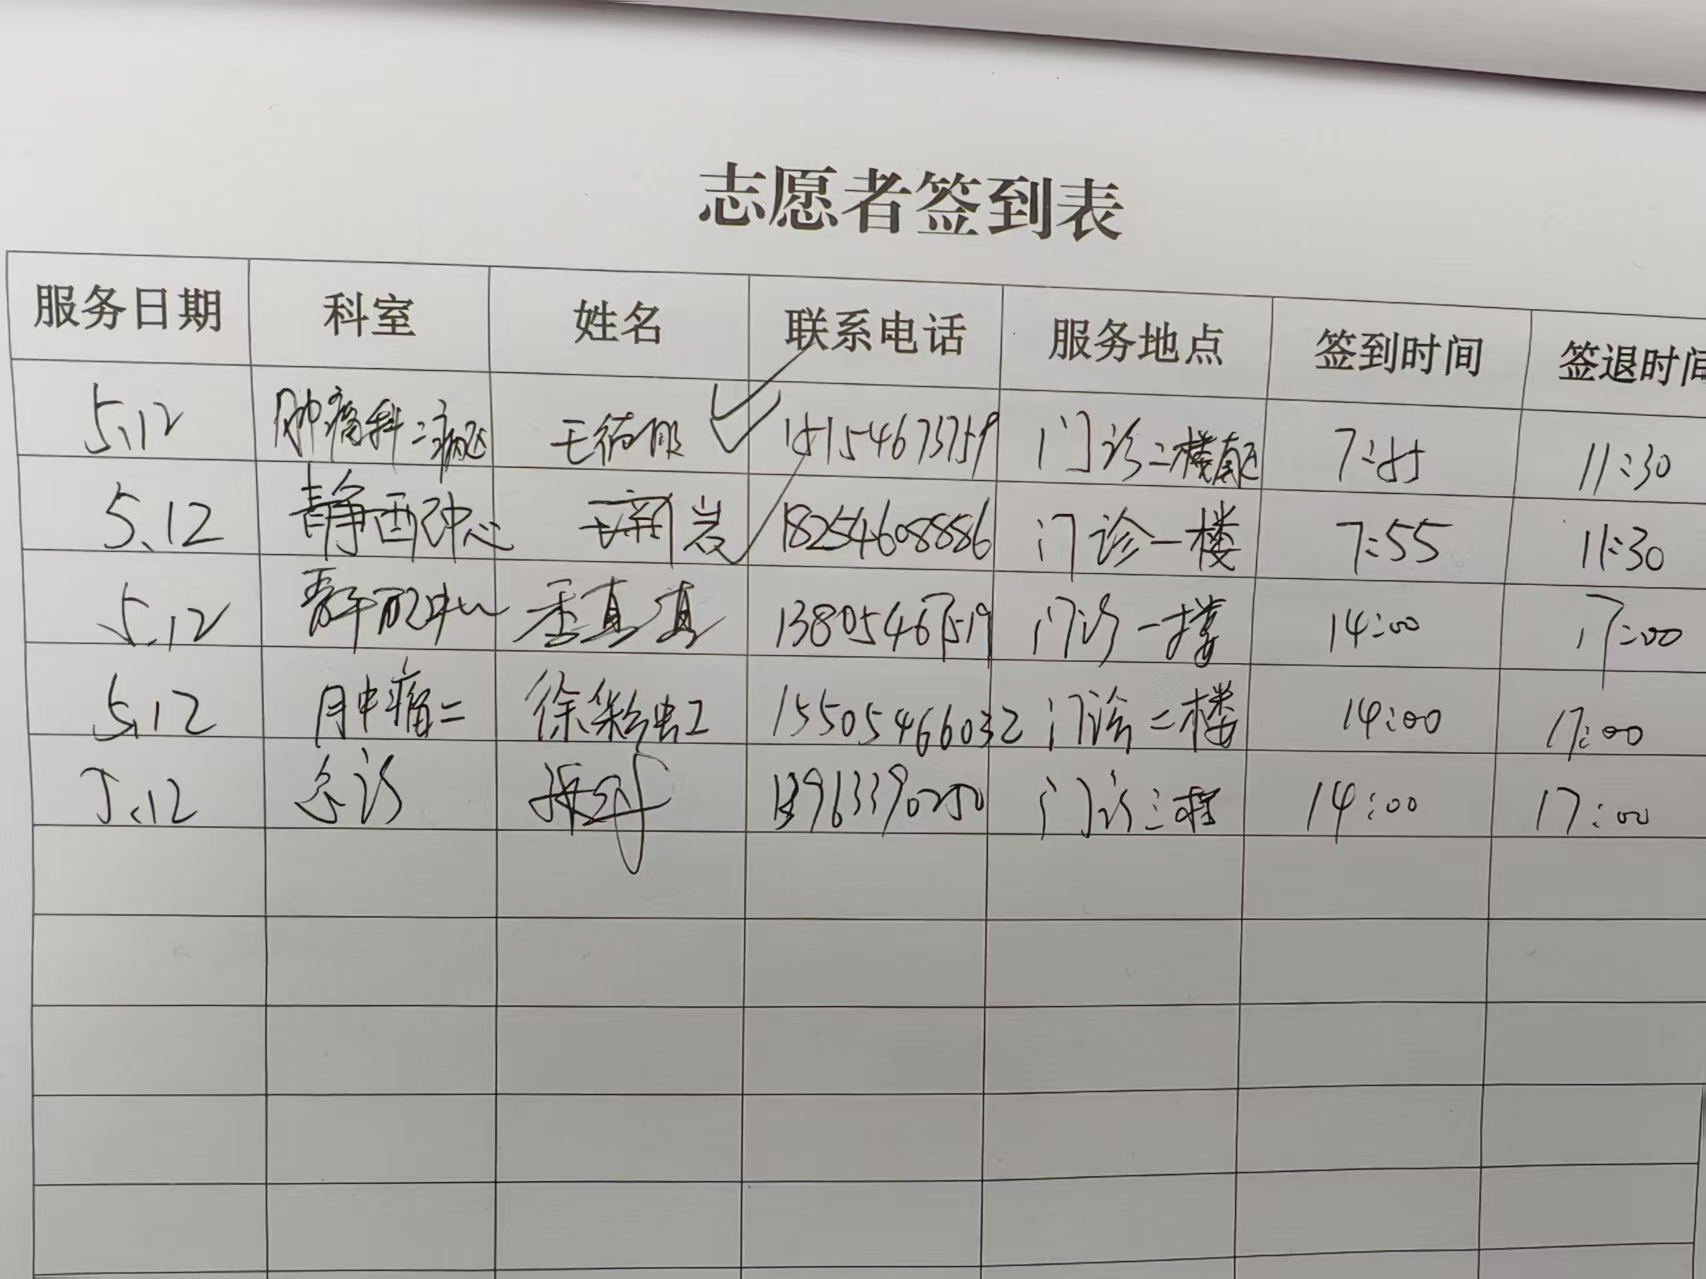 志愿者签到表
服务日期 科室 姓名 联系电话 服务地点 签到时间 签退时间
5.12 肿瘤科二病区 王 15154673759 门诊二楼南区 7:55 11:30
5.12 静配中心 岩 18254608886 门诊一楼 7:55 11:30
5.12 静配中心 真真 门诊一楼 14:00 17:00
5.12 肿瘤二 徐彩虹 15505466032 门诊二楼 14:00 17:00
5.12 急诊 张 门诊三楼 14:00 17:00